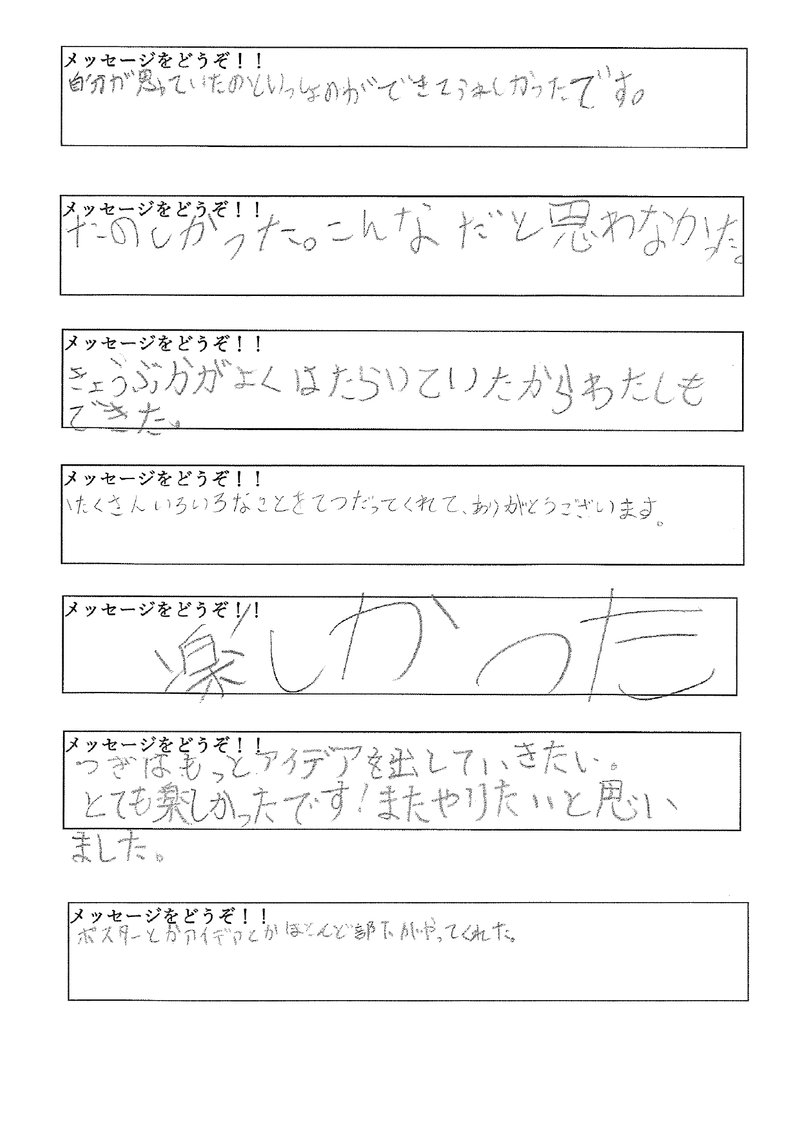 メッセージをどうぞ！！
自分が思っていたのといっしょのができてうれしかったです。
メッセージをどうぞ！！
たのしかった。こんなだと思わなかった。
メッセージをどうぞ！！
きょうぶかがよくはたらいていたからわたしも
できた。
メッセージをどうぞ！！
たくさんいろいろなことをてつだってくれて、ありがとうございます。
メッセージをどうぞ！！
楽しかった
メッセージをどうぞ！！
つぎはもっとアイデアを出していきたい。
とても楽しかったです！またやりたいと思い
ました。
メッセージをどうぞ！！
ポスターとかアイデアとかほとんど部下がやってくれた。